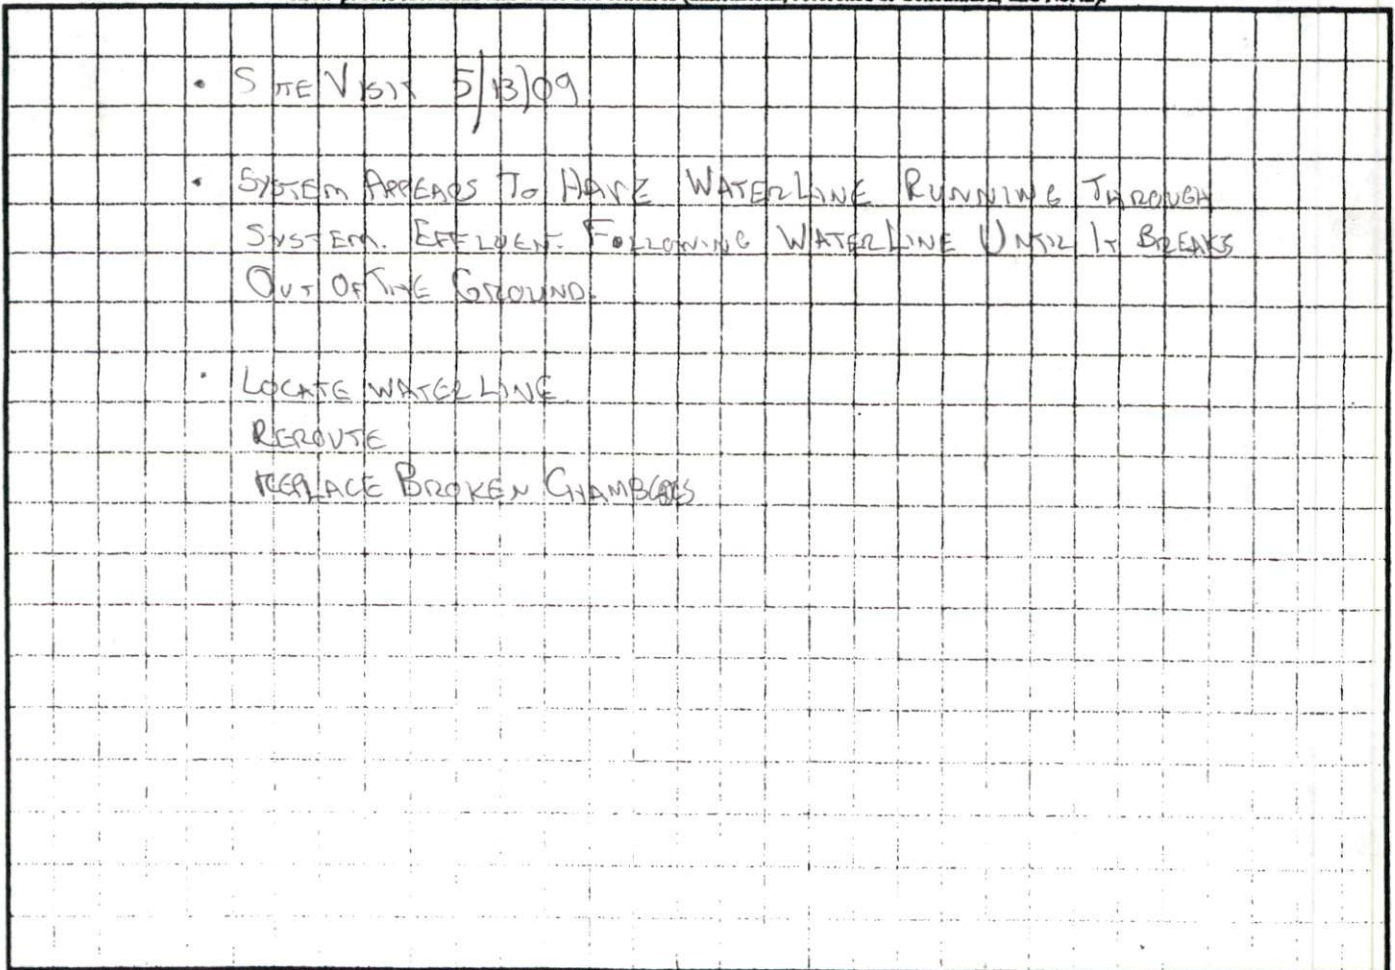 • SITE VISIT 5/13/09
• SYSTEM APPEARS TO HAVE WATERLINE RUNNING THROUGH
SYSTEM. EFFLUENT FOLLOWING WATERLINE UNTIL IT BREAKS
OUT OF THE GROUND.
• LOCATE WATERLINE
REROUTE
REPLACE BROKEN CHAMBERS